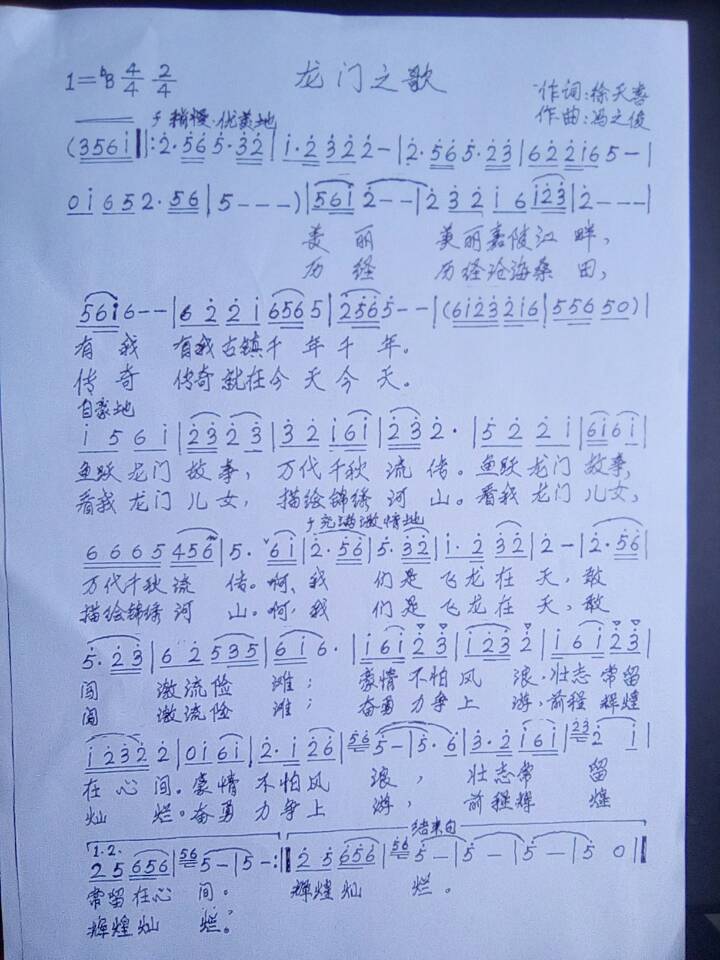 龙门之歌
1=♭B 4/4 2/4
作词:徐天喜
作曲:冯之俊
稍慢·优美地
(3561‖:2·565·32|1·23222-|2·565·23|622165-|
016522·56|5---)|5612--|2321 6123|2---|
美丽 美丽嘉陵江畔,
历经 历经沧海桑田,
5616--|6221 6565|2565--|(6123216|556550)|
有我 有我古镇千年千年。
传奇 传奇就在今天今天。
自豪地
1561|2323|32161|232·|5221|6161|
鱼跃龙门故事,万代千秋流传。鱼跃龙门故事,
看我龙门儿女,描绘锦绣河山。看我龙门儿女,
充满激情地
6665456|5·61|2·56|5·32|1·232|2-|2·56|
万代千秋流传。啊,我们是飞龙在天,敢
描绘锦绣河山。啊,我们是飞龙在天,敢
5·23|62535|616·|16123|1232|16123|
闯激流险滩;豪情不怕风浪,壮志常留
闯激流险滩;奋勇力争上游,前程辉煌
12322|0161|2·126|565-|5·6|3·2161|232 1|
在心间。豪情不怕风浪,壮志常留
灿烂。奋勇力争上游,前程辉煌
1.2. 结束句
25656|565-|5-:‖25656|565-|5-|5-|50‖
常留在心间。 辉煌灿烂。
辉煌灿烂。